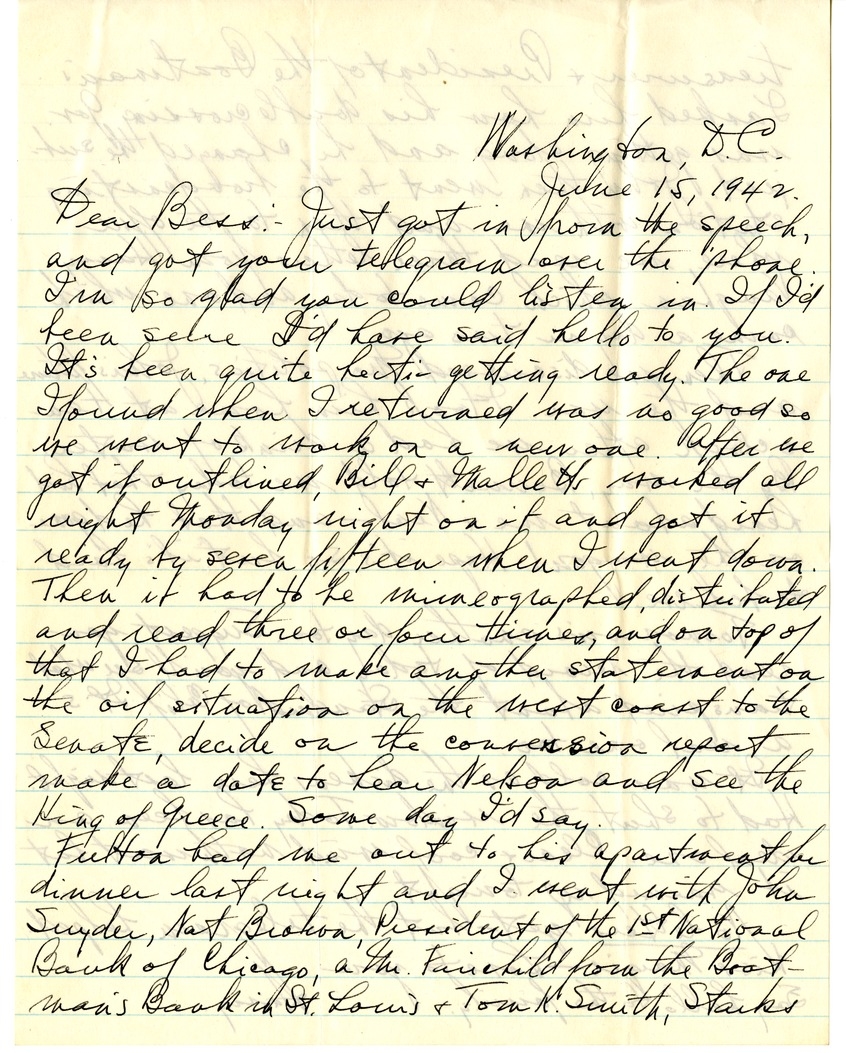 Washington, D.C.
June 15, 1942.
Dear Bess:- Just got in from the speech,
and got your telegram over the 'phone.
I'm so glad you could listen in. If I'd
been sure I'd have said hello to you.
It's been quite hectic getting ready. The one
I found when I returned was no good so
we went to work on a new one. After we
got it outlined, Bill & Malletts worked all
night Monday night on it and got it
ready by seven fifteen when I went down.
Then it had to be mimeographed, distributed
and read three or four times, and on top of
that I had to make another statement on
the oil situation on the west coast to the
Senate, decide on the conversion report
make a date to hear Nelson and see the
King of Greece. Some day I'd say.
Fulton had me out to his apartment for
dinner last night and I went with John
Snyder, Nat Brown, President of the 1st National
Bank of Chicago, a Mr. Fairchild from the Boat-
man's Bank in St. Louis & Tom K. Smith, Starks